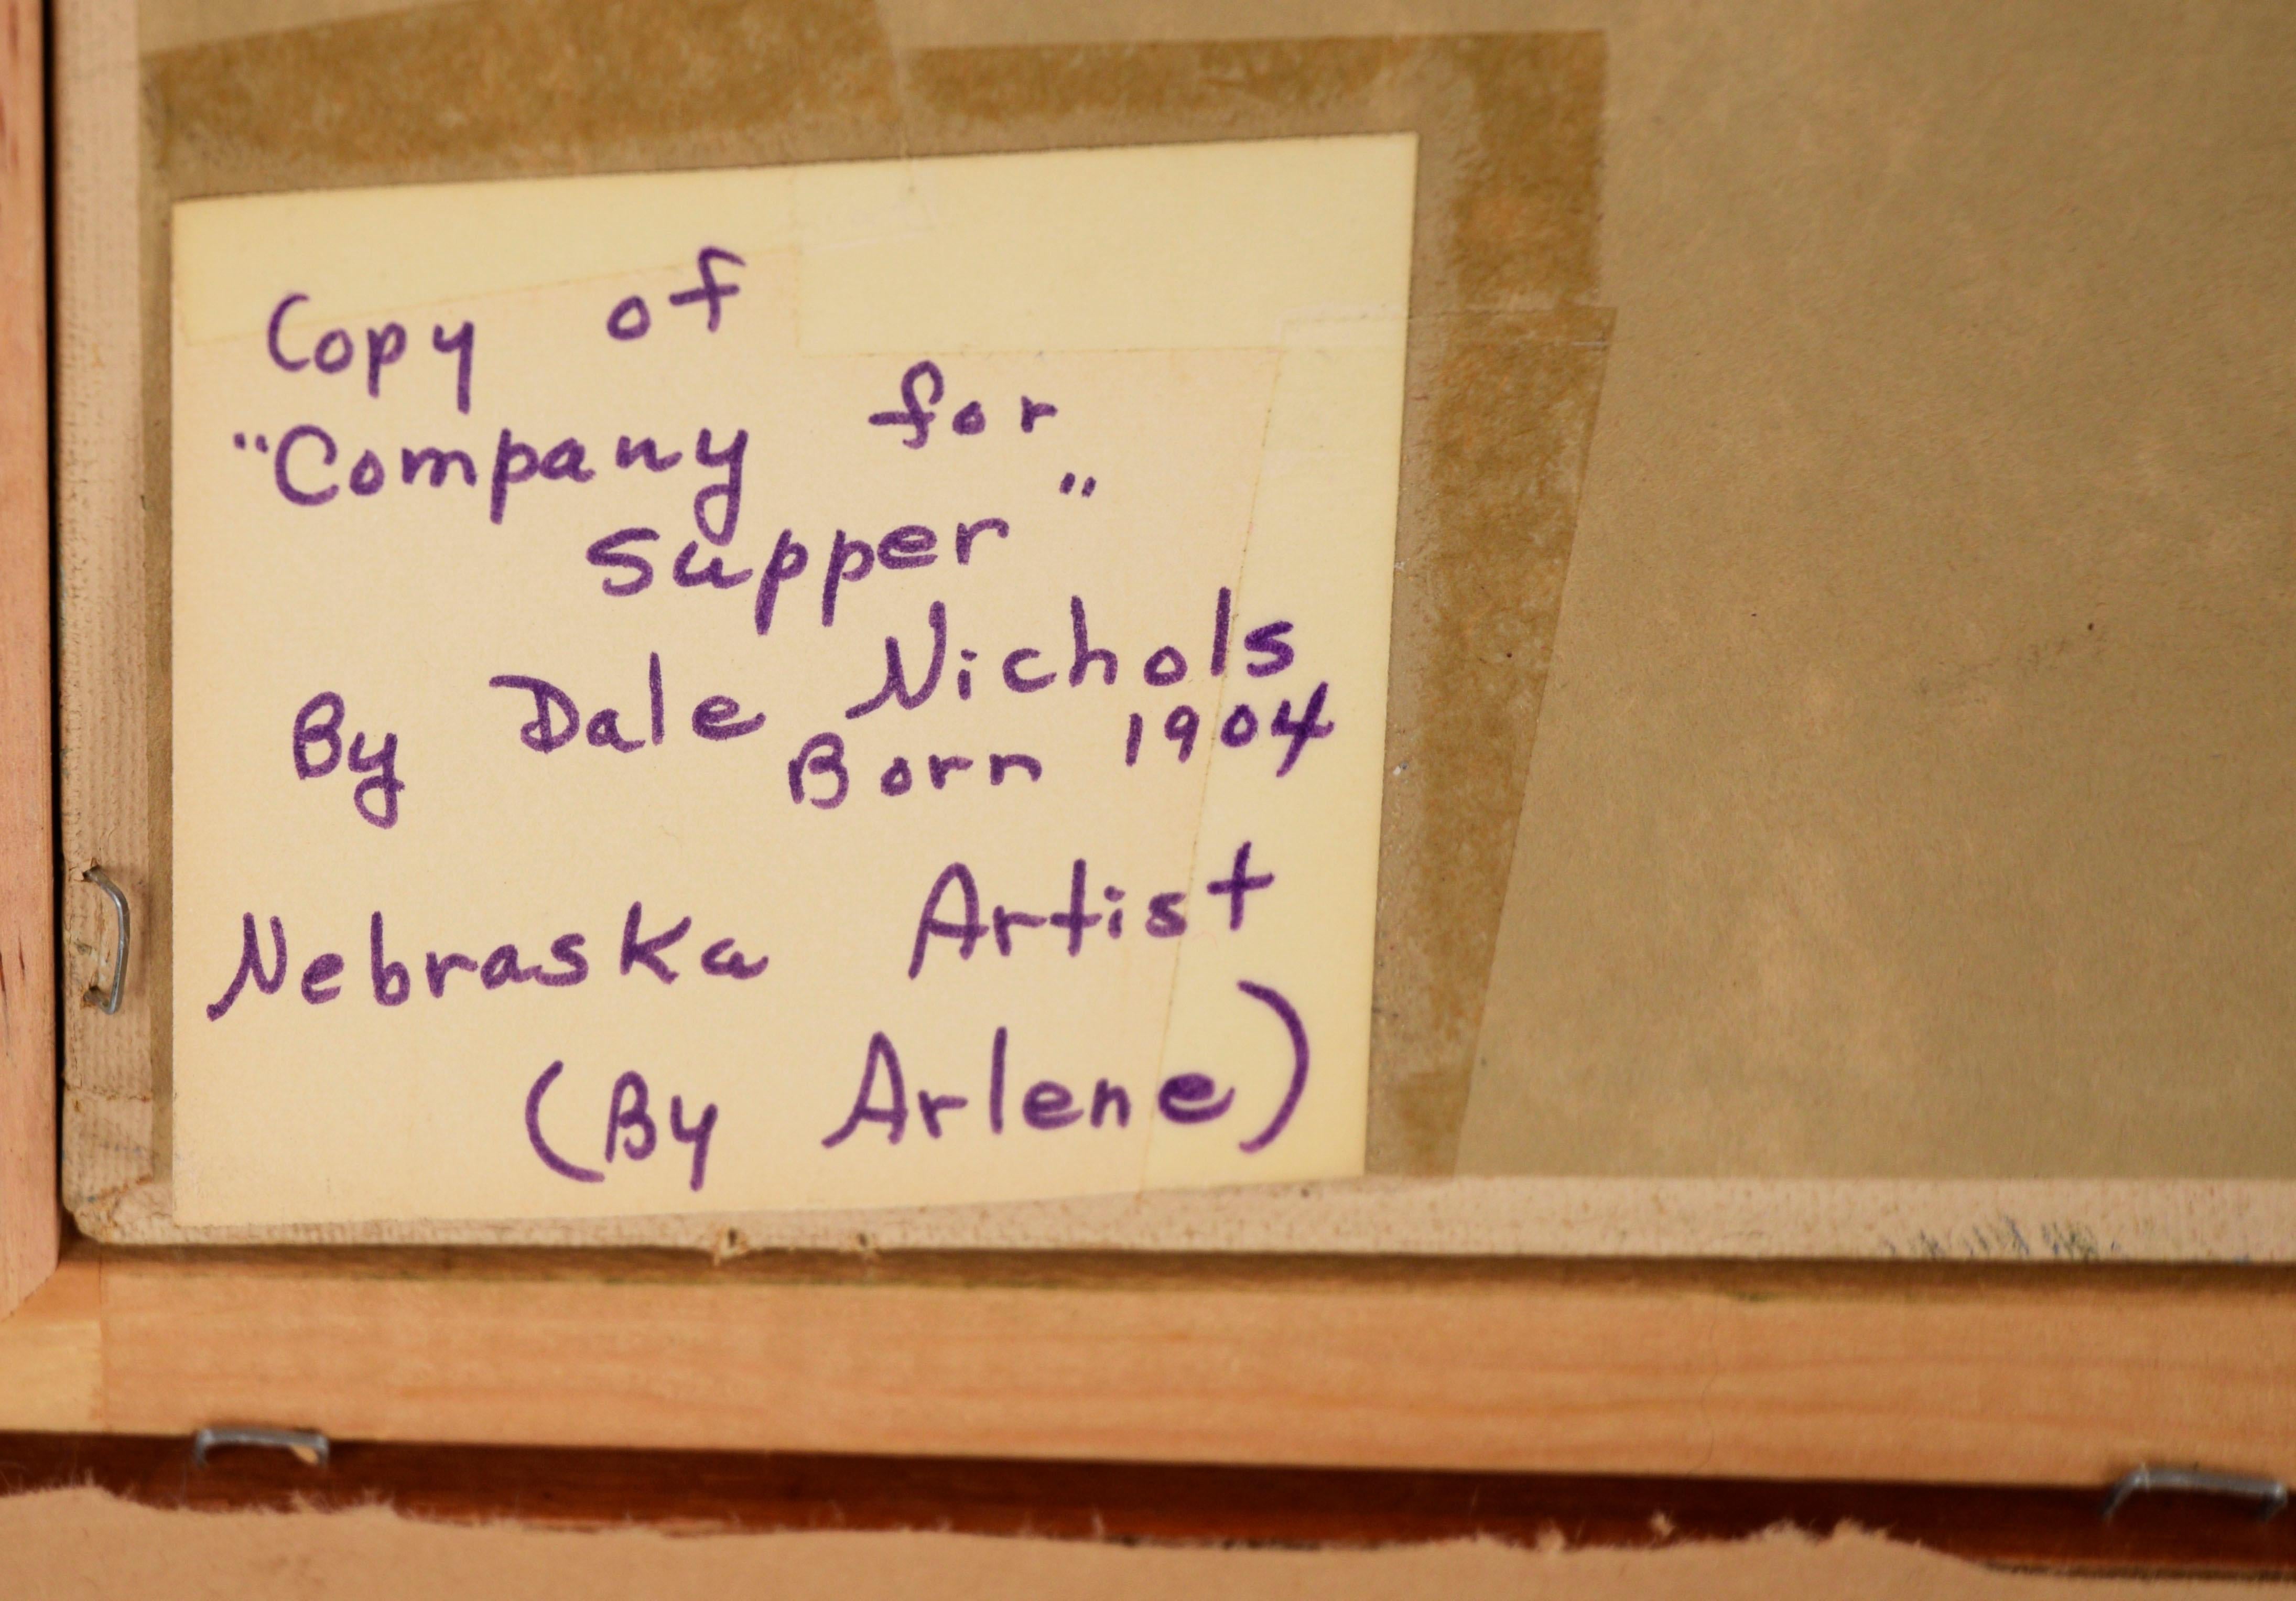 Copy of
"Company for
Supper"
By Dale Nichols
Born 1904
Nebraska Artist
(By Arlene)